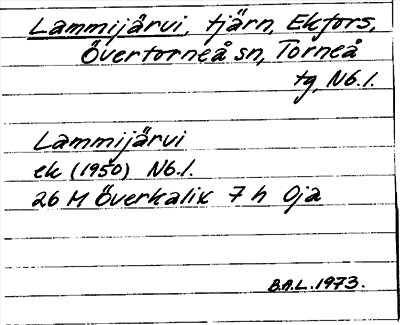 Lammijärvi, tjärn, Ekfors,
Övertorneå sn, Torneå
tg, Nb.l.
Lammijärvi
ek (1950) Nb.l.
26 M Överkalix 7 h Oja
B.A.L. 1973.